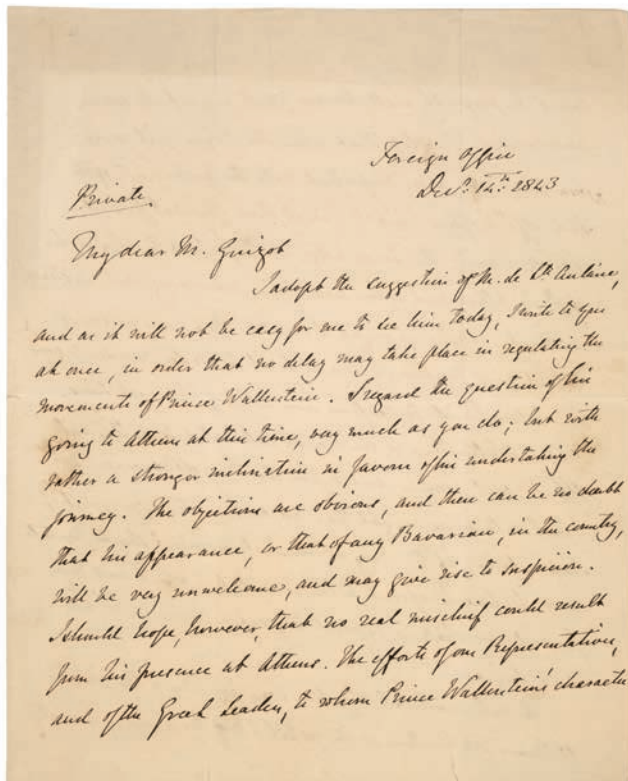 Foreign Office
Decr. 14th. 1843
Private.
My dear M. Guizot
I adopt the suggestion of M. de Ste Aulaire,
and as it will not be easy for me to see him today, I write to you
at once, in order that no delay may take place in regulating the
movements of Prince Wallenstein. I regard the question of his
going to Athens at this time, very much as you do; but with
rather a stronger inclination in favour of his undertaking the
journey. The objections are obvious, and there can be no doubt
that his appearance, or that of any Bavarian, in the country,
will be very unwelcome, and may give rise to suspicion.
I should hope, however, that no real mischief could result
from his presence at Athens. The efforts of our Representatives,
and of the Greek Leaders, to whom Prince Wallenstein's character